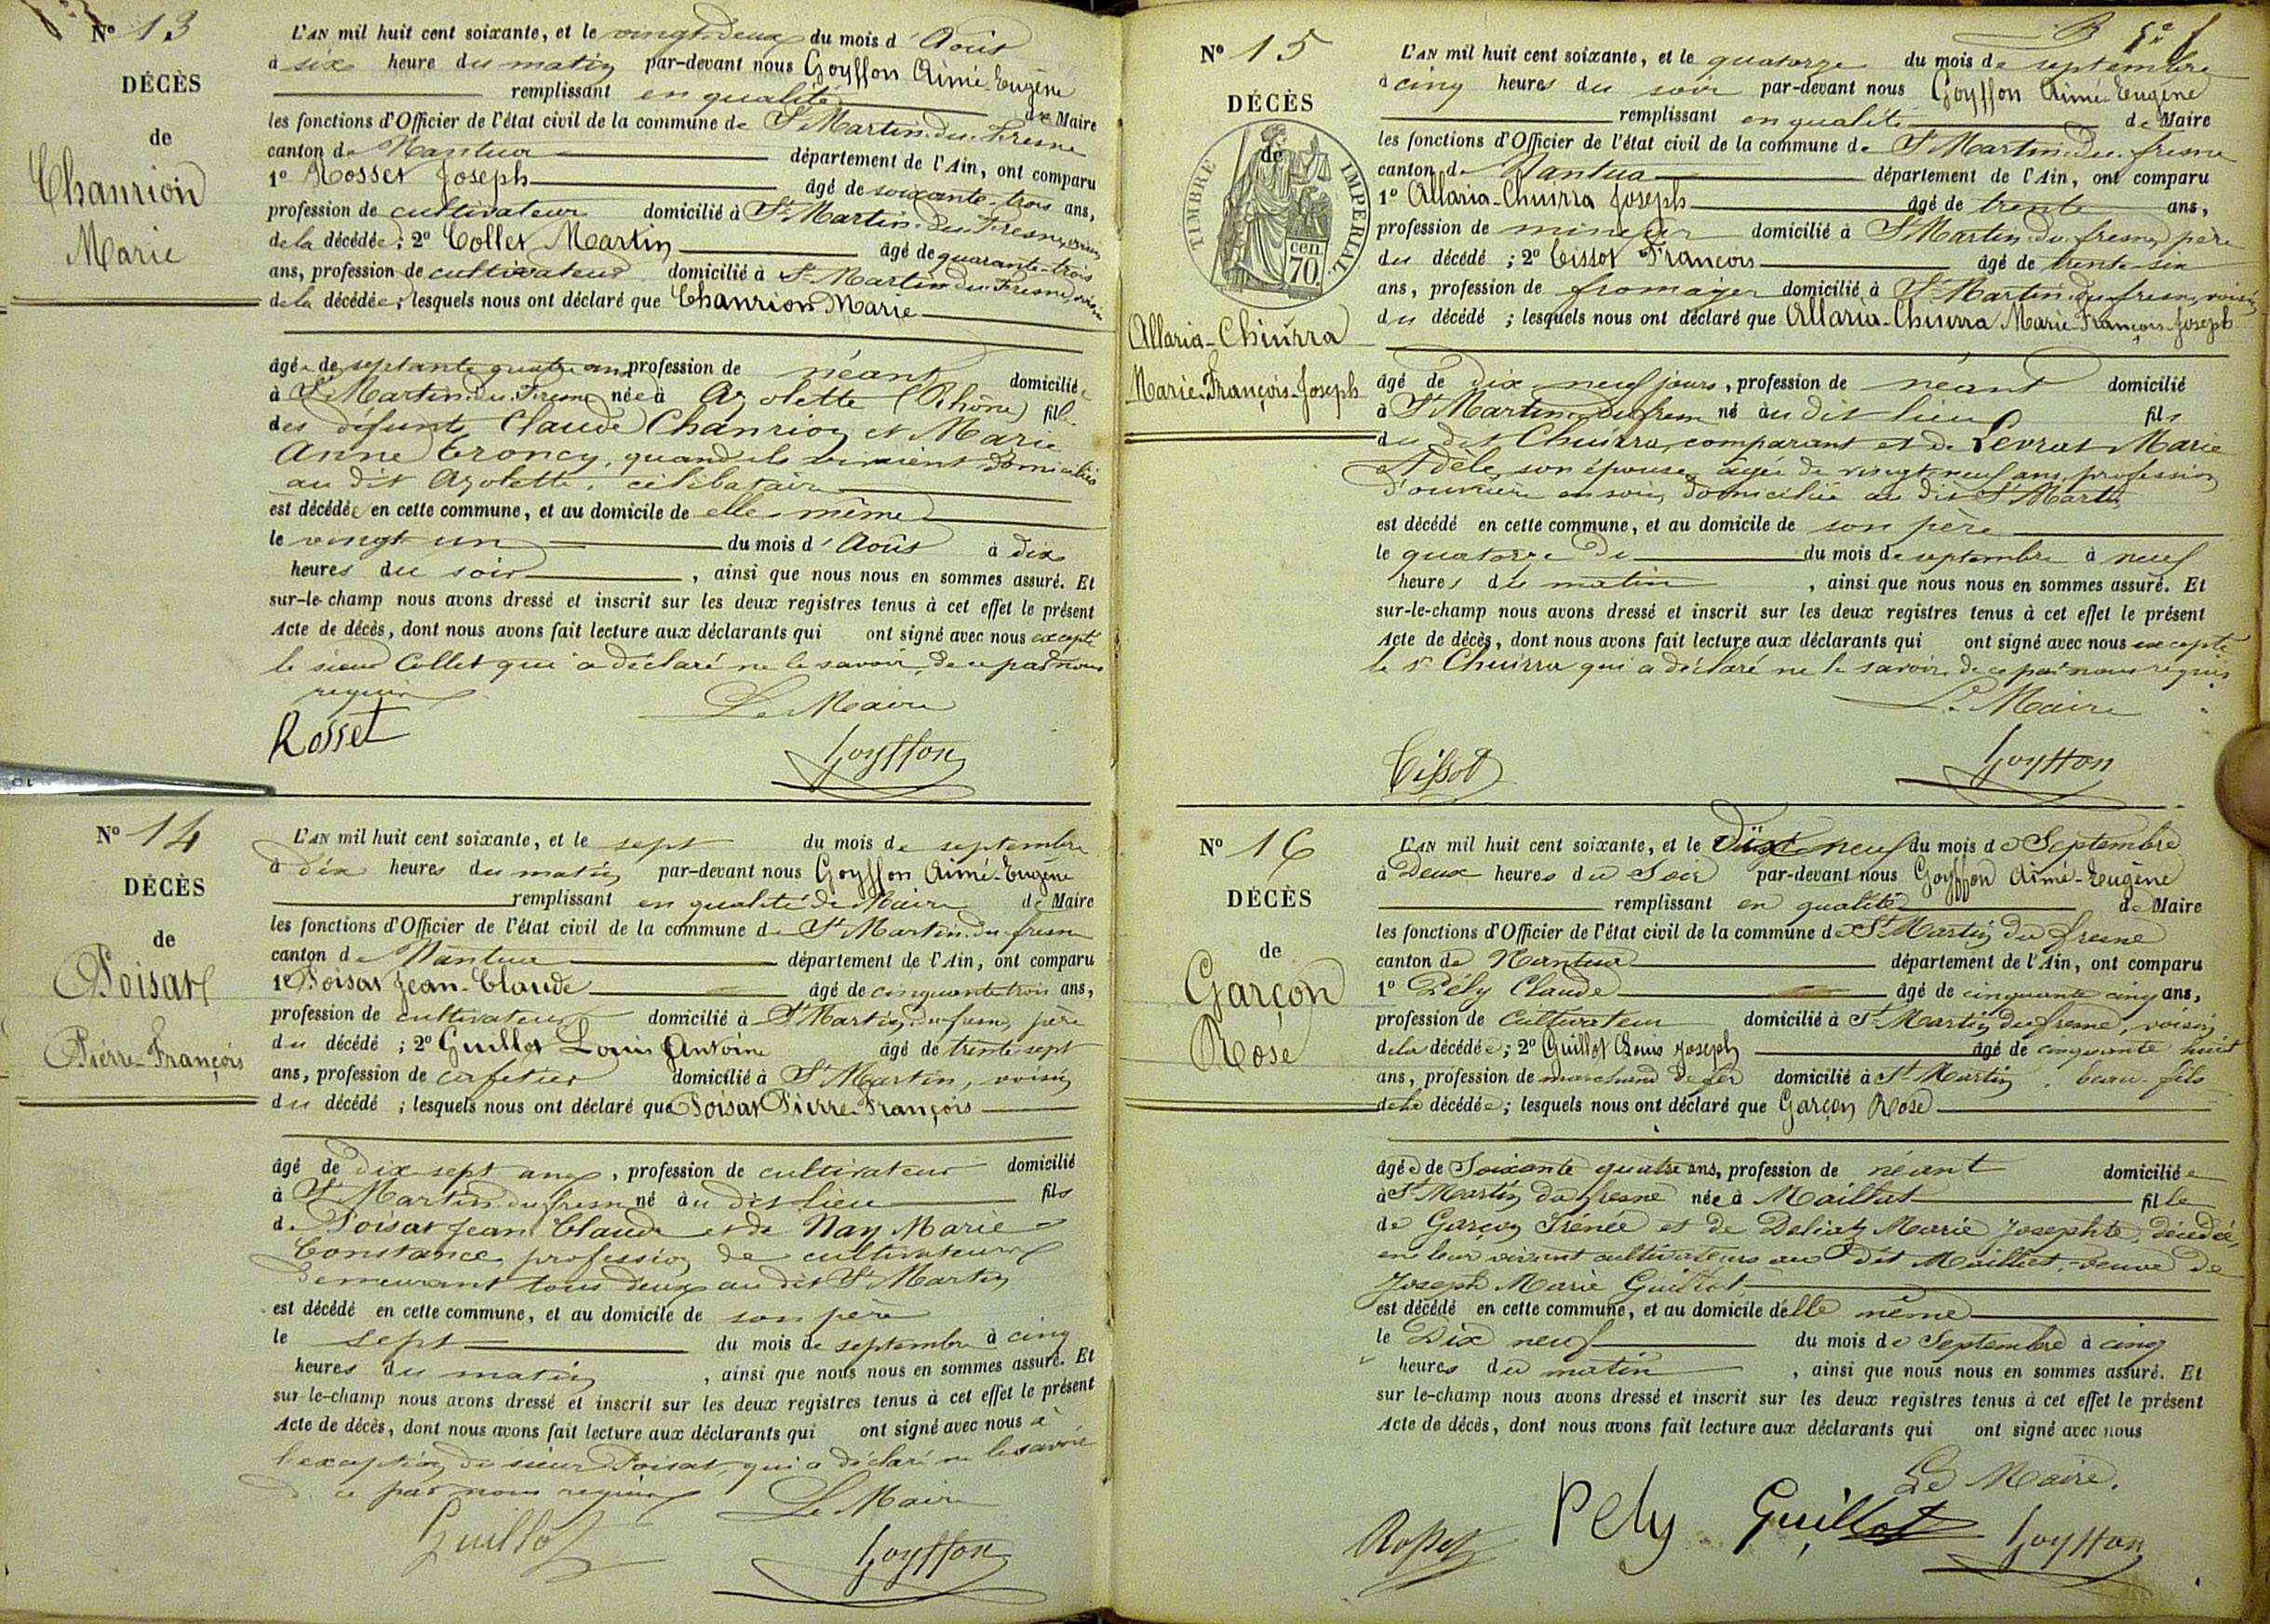 Nº 13
DÉCÈS
de
Chanrion
Marie
L'AN mil huit cent soixante, et le vingt deux du mois d'Août
à six heure du matin par-devant nous Goyffon Aimé-Eugène
remplissant en qualité de Maire
les fonctions d'Officier de l'état civil de la commune de St Martin-du-Fresne
canton de Nantua département de l'Ain, ont comparu
1º Rosset Joseph âgé de soixante-trois ans,
profession de cultivateur domicilié à St Martin-du-Fresne, voisin
de la décédée ; 2º Collet Martin âgé de quarante-trois
ans, profession de cultivateur domicilié à St Martin du Fresne, voisin
de la décédée ; lesquels nous ont déclaré que Chanrion Marie
âgée de septante quatre ans profession de néant domiciliée
à St Martin du Fresne née à Azolette (Rhône) fille
des défunts Claude Chanrion et Marie
Anne Troncy, quand ils vivaient domiciliés
au dit Azolette, célibataire
est décédée en cette commune, et au domicile de elle-même
le vingt un du mois d'Août à dix
heures du soir , ainsi que nous nous en sommes assuré. Et
sur-le-champ nous avons dressé et inscrit sur les deux registres tenus à cet effet le présent
Acte de décès, dont nous avons fait lecture aux déclarants qui ont signé avec nous excepté
le sieur Collet qui a déclaré ne le savoir, de ce par nous
requis
Le Maire
Rosset
Goyffon
Nº 14
DÉCÈS
de
Poisat
Pierre-François
L'AN mil huit cent soixante, et le sept du mois de septembre
à dix heures du matin par-devant nous Goyffon Aimé-Eugène
remplissant en qualité de Maire de Maire
les fonctions d'Officier de l'état civil de la commune de St Martin-du-fresne
canton de Nantua département de l'Ain, ont comparu
1º Poisat Jean-Claude âgé de cinquante trois ans,
profession de cultivateur domicilié à St Martin-du-fresne, père
du décédé ; 2º Guillot Louis Antoine âgé de trente sept
ans, profession de cafetier domicilié à St Martin, voisin
du décédé ; lesquels nous ont déclaré que Poisat Pierre-François
âgé de dix sept ans, profession de cultivateur domicilié
à St Martin-du-fresne né au dit lieu fils
de Poisat Jean Claude et de Nay Marie
Constance profession de cultivateurs
demeurant tous deux au dit St Martin
est décédé en cette commune, et au domicile de son père
le sept du mois de septembre à cinq
heures du matin , ainsi que nous nous en sommes assuré. Et
sur-le-champ nous avons dressé et inscrit sur les deux registres tenus à cet effet le présent
Acte de décès, dont nous avons fait lecture aux déclarants qui ont signé avec nous à
l'exception du sieur Poisat, qui a déclaré ne le savoir
de ce par nous requis
Le Maire
Guillot
Goyffon
Nº 15
DÉCÈS
de
TIMBRE IMPERIAL
cen
70.
Allaria-Chiurra
Marie-François-Joseph
L'AN mil huit cent soixante, et le quatorze du mois de septembre
à cinq heures du soir par-devant nous Goyffon Aimé-Eugène
remplissant en qualité de Maire
les fonctions d'Officier de l'état civil de la commune de St Martin-du-fresne
canton de Nantua département de l'Ain, ont comparu
1º Allaria-Chuirra Joseph âgé de trente ans,
profession de mineur domicilié à St Martin-du-fresne, père
du décédé ; 2º Tissot François âgé de trente-six
ans, profession de fromager domicilié à St Martin-du-fresne, voisin
du décédé ; lesquels nous ont déclaré que Allaria-Chuirra Marie-François-Joseph
âgé de dix-neuf jours, profession de néant domicilié
à St Martin-du-fresne né au dit lieu fils
du dit Chuirra, comparant et de Levrat Marie
Adèle, son épouse, âgée de vingt-neuf ans, profession
d'ouvrière en soie, domiciliée au dit St Martin
est décédé en cette commune, et au domicile de son père
le quatorze du du mois de septembre à neuf
heures du matin , ainsi que nous nous en sommes assuré. Et
sur-le-champ nous avons dressé et inscrit sur les deux registres tenus à cet effet le présent
Acte de décès, dont nous avons fait lecture aux déclarants qui ont signé avec nous excepté
le Sr Chuirra qui a déclaré ne le savoir, de ce par nous requis
Le Maire
Tissot
Goyffon
Nº 16
DÉCÈS
de
Garçon
Rose
L'AN mil huit cent soixante, et le Dix neuf du mois de Septembre
à Deux heures du Soir par-devant nous Goyffon Aimé-Eugène
remplissant en qualité de Maire
les fonctions d'Officier de l'état civil de la commune de St Martin du fresne
canton de Nantua département de l'Ain, ont comparu
1º Pély Claude âgé de cinquante cinq ans,
profession de Cultivateur domicilié à St Martin du fresne, voisin
de la décédée ; 2º Guillot Louis Joseph âgé de cinquante huit
ans, profession de marchand de fer domicilié à St Martin, beau-fils
de la décédée ; lesquels nous ont déclaré que Garçon Rose
âgée de Soixante quatre ans, profession de néant domiciliée
à St Martin du fresne née à Maillat fille
de Garçon Irénée et de Deliat Marie Josephte, décédés,
en leur vivant cultivateurs au dit Maillat, veuve de
Joseph Marie Guillot
est décédé en cette commune, et au domicile d'elle même
le Dix neuf du mois de Septembre à cinq
heures du matin , ainsi que nous nous en sommes assuré. Et
sur-le-champ nous avons dressé et inscrit sur les deux registres tenus à cet effet le présent
Acte de décès, dont nous avons fait lecture aux déclarants qui ont signé avec nous
Le Maire.
Rosset Pely Guillot Goyffon